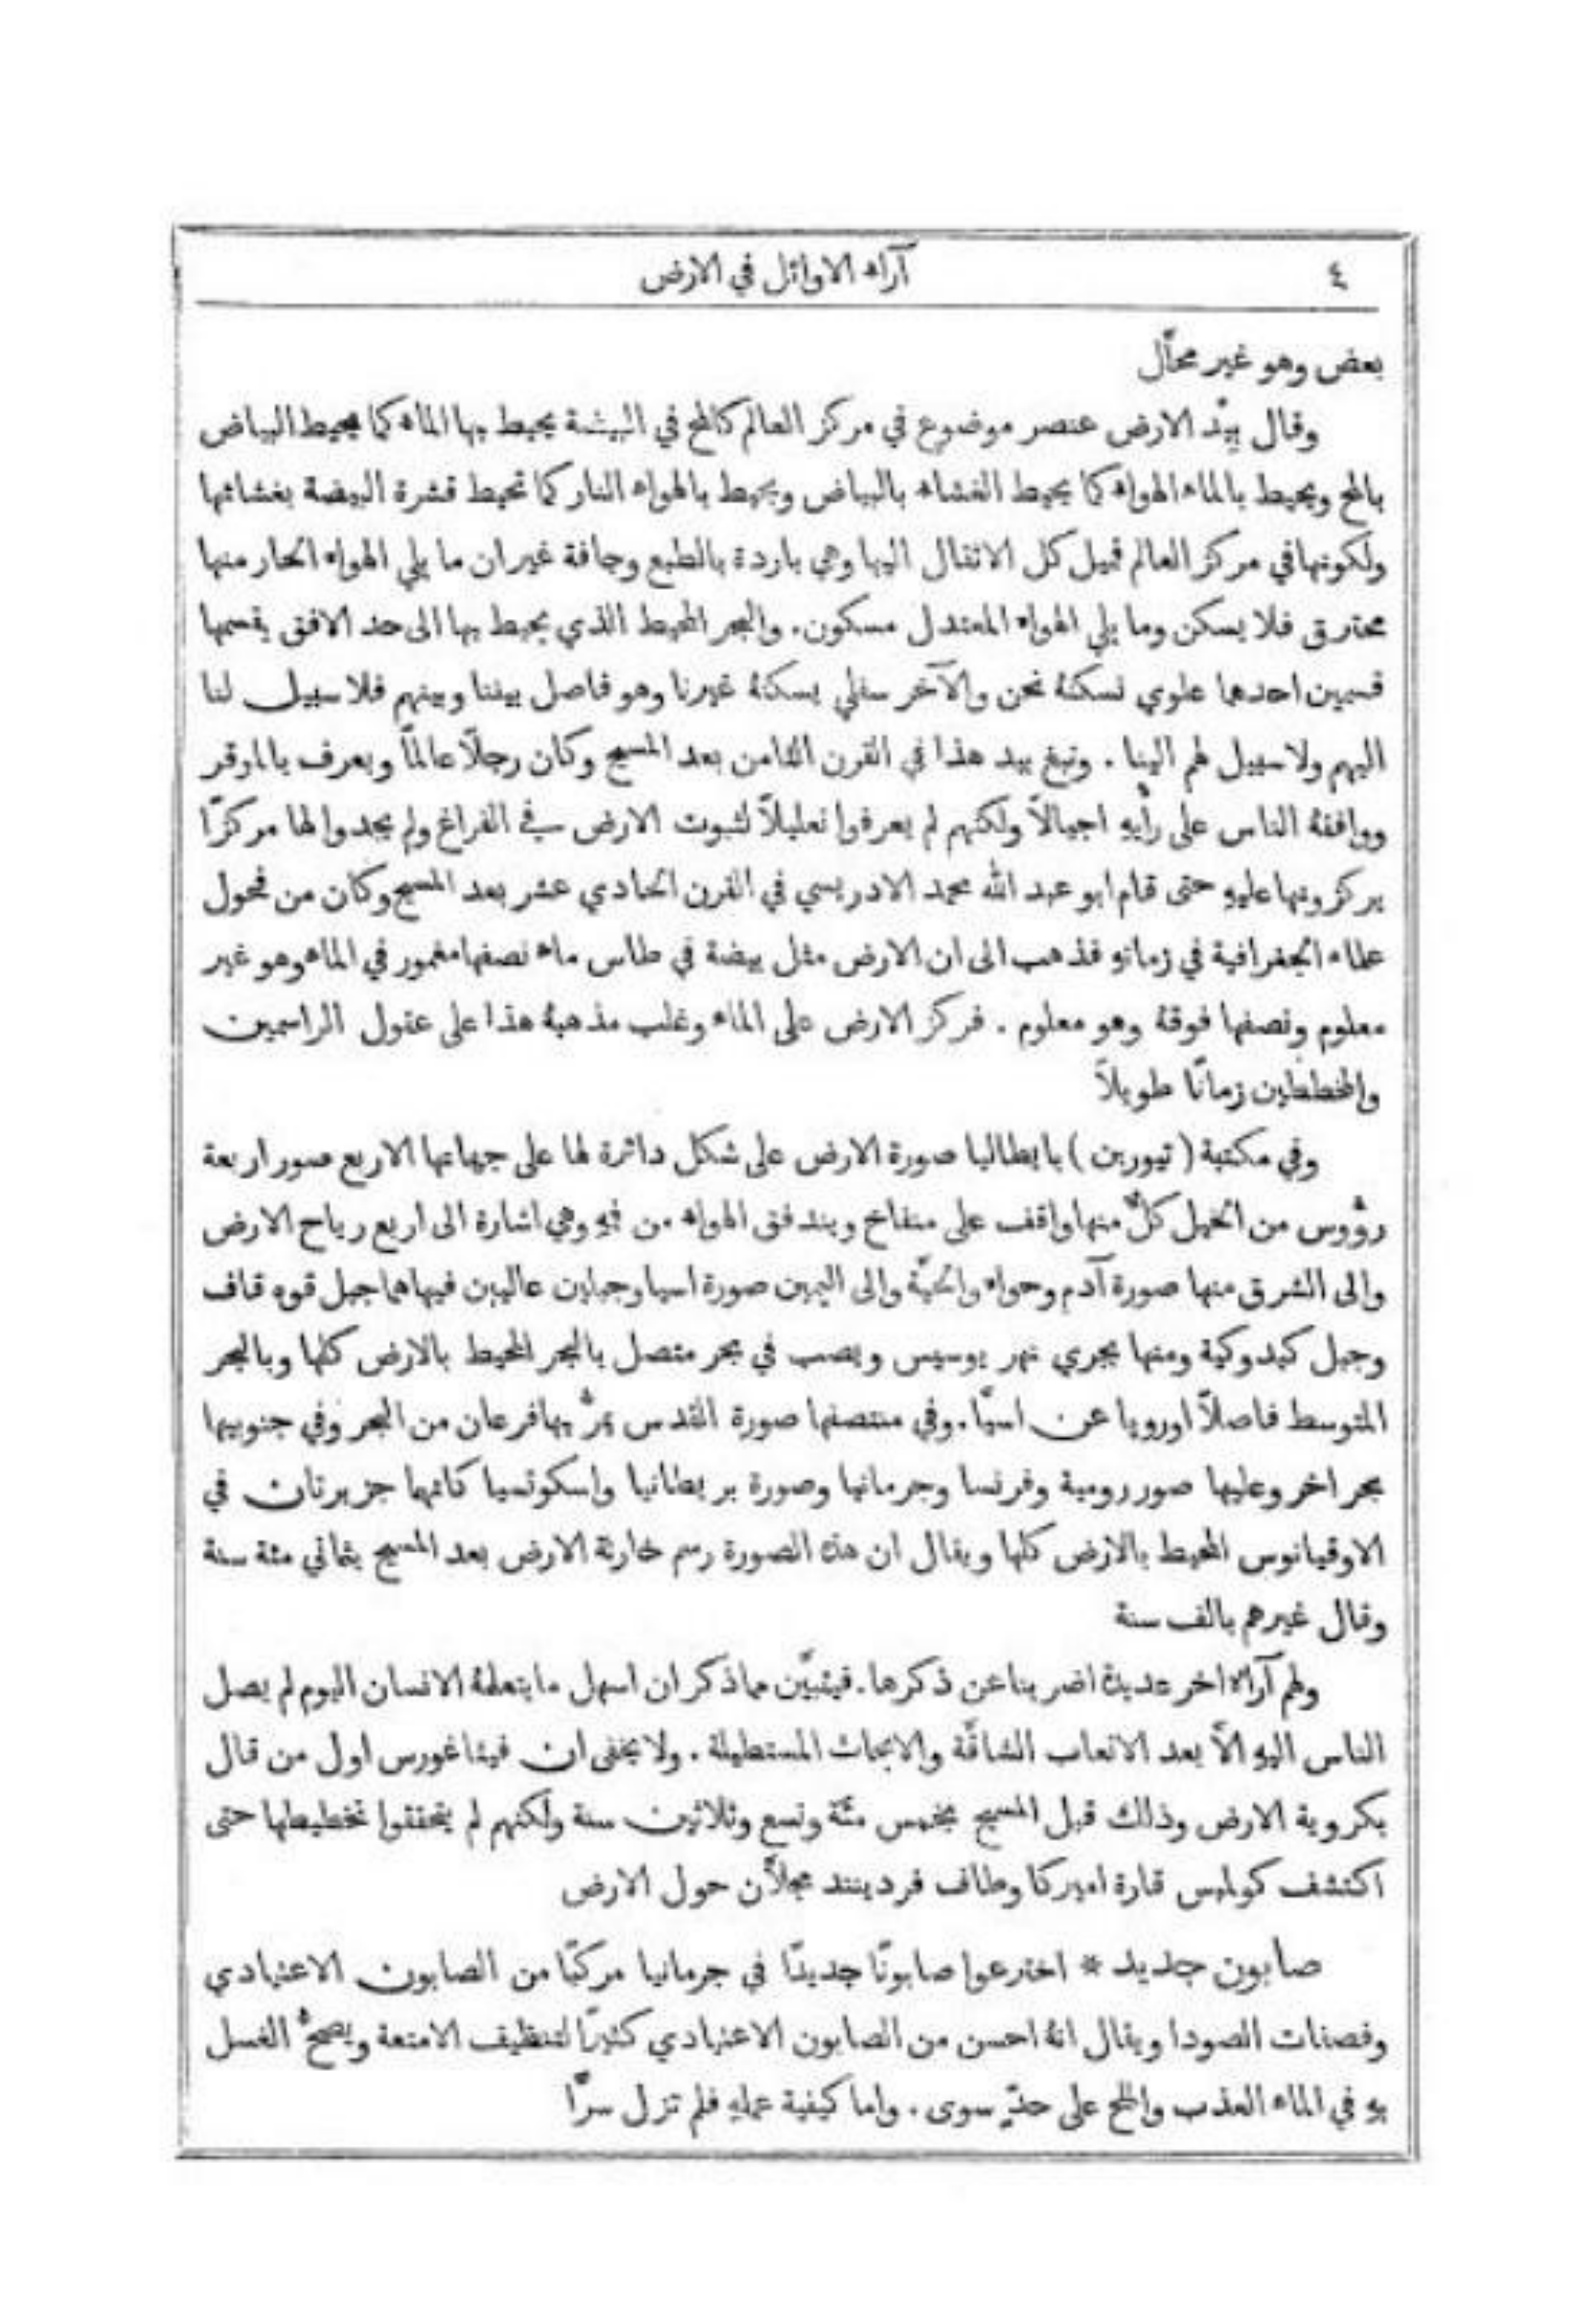 ٤
آراء الاوائل في الارض
بعض وهو غير محال
وقال بيد الارض عنصر موضوع في مركز العالم كالمح في البيضة يحيط بها الماء كما يحيط البياض
بالمح ويحيط بالماء الهواء كما يحيط الغشاء بالبياض ويحيط بالهواء النار كما تحيط قشرة البيضة بغشائها
ولكونها في مركز العالم تميل كل الاثقال اليها وهي باردة بالطبع وجافة غير ان ما يلي الهواء الحار منها
محترق فلا يسكن وما يلي الهواء المعتدل مسكون. والبحر المحيط الذي يحيط بها الى حد الافق يقسمها
قسمين احدهما علوي نسكنهُ نحن والآخر سفلي يسكنهُ غيرنا وهو فاصل بيننا وبينهم فلا سبيل لنا
اليهم ولا سبيل لهم الينا. ونبغ بيد هذا في القرن الثامن بعد المسيح وكان رجلاً عالماً ويعرف بالموقر
ووافقهُ الناس على رأيهِ اجمالاً ولكنهم لم يعرفوا تعليلاً لثبوت الارض في الفراغ ولم يجدوا لها مركزًا
يركزونها عليهِ حتى قام ابو عبد الله محمد الادريسي في القرن الحادي عشر بعد المسيح وكان من فحول
علماء الجغرافية في زمانهِ فذهب الى ان الارض مثل بيضة في طاس ماء نصفها مغمور في الماء وهو غير
معلوم ونصفها فوقهُ وهو معلوم. فركز الارض على الماء وغلب مذهبهُ هذا على عقول الراسمين
والمخططين زمانًا طويلاً
وفي مكتبة (تيورين) بايطاليا صورة الارض على شكل دائرة لها على جهاتها الاربع صور اربعة
رؤُوس من الخيل كلٌّ منها واقف على منفاخ ويندفق الهواء من فيهِ وهي اشارة الى اربع رياح الارض
والى الشرق منها صورة آدم وحواء والحيّة والى اليمين صورة اسيا وجبلين عاليين فيها هما جبل قوه قاف
وجبل كبدوكية ومنها يجري نهر يوسيس ويصب في بحر متصل بالبحر المحيط بالارض كلها وبالبحر
المتوسط فاصلاً اوروپا عن اسيَّا. وفي منتصفها صورة القدس يمرُّ بها فرعان من البحر وفي جنوبيها
بحر اخر وعليها صور رومية وفرنسا وجرمانيا وصورة بريطانيا واسكوتسيا كانهما جزيرتان في
الاوقيانوس المحيط بالارض كلها ويقال ان هذه الصورة رسم خارتة الارض بعد المسيح بثماني مئة سنة
وقال غيرهم بالف سنة
ولهم آراءٌ اخر عديدة اضربنا عن ذكرها. فيتبيَّن مما ذكر ان اسهل ما يتعلمهُ الانسان اليوم لم يصل
الناس اليهِ الاَّ بعد الاتعاب الشاقَّة والابحاث المستطيلة. ولا يخفى ان فيثاغورس اول من قال
بكروية الارض وذلك قبل المسيح بخمس مئة وتسع وثلاثين سنة ولكنهم لم يتحققوا تخطيطها حتى
اكتشف كولمبس قارة اميركا وطاف فردينند مجلاَّن حول الارض
صابون جديد * اخترعوا صابونًا جديدًا في جرمانيا مركبًا من الصابون الاعتيادي
وفصفات الصودا ويقال انهُ احسن من الصابون الاعتيادي كثيرًا لتنظيف الامتعة ويصحُّ الغسل
بهِ في الماء العذب والملح على حدٍّ سوى. واما كيفية عملهِ فلم تزل سرًّا